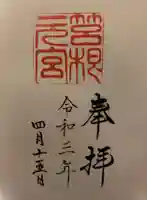 筥根
元宮
奉拝
令和二年
四月十五日